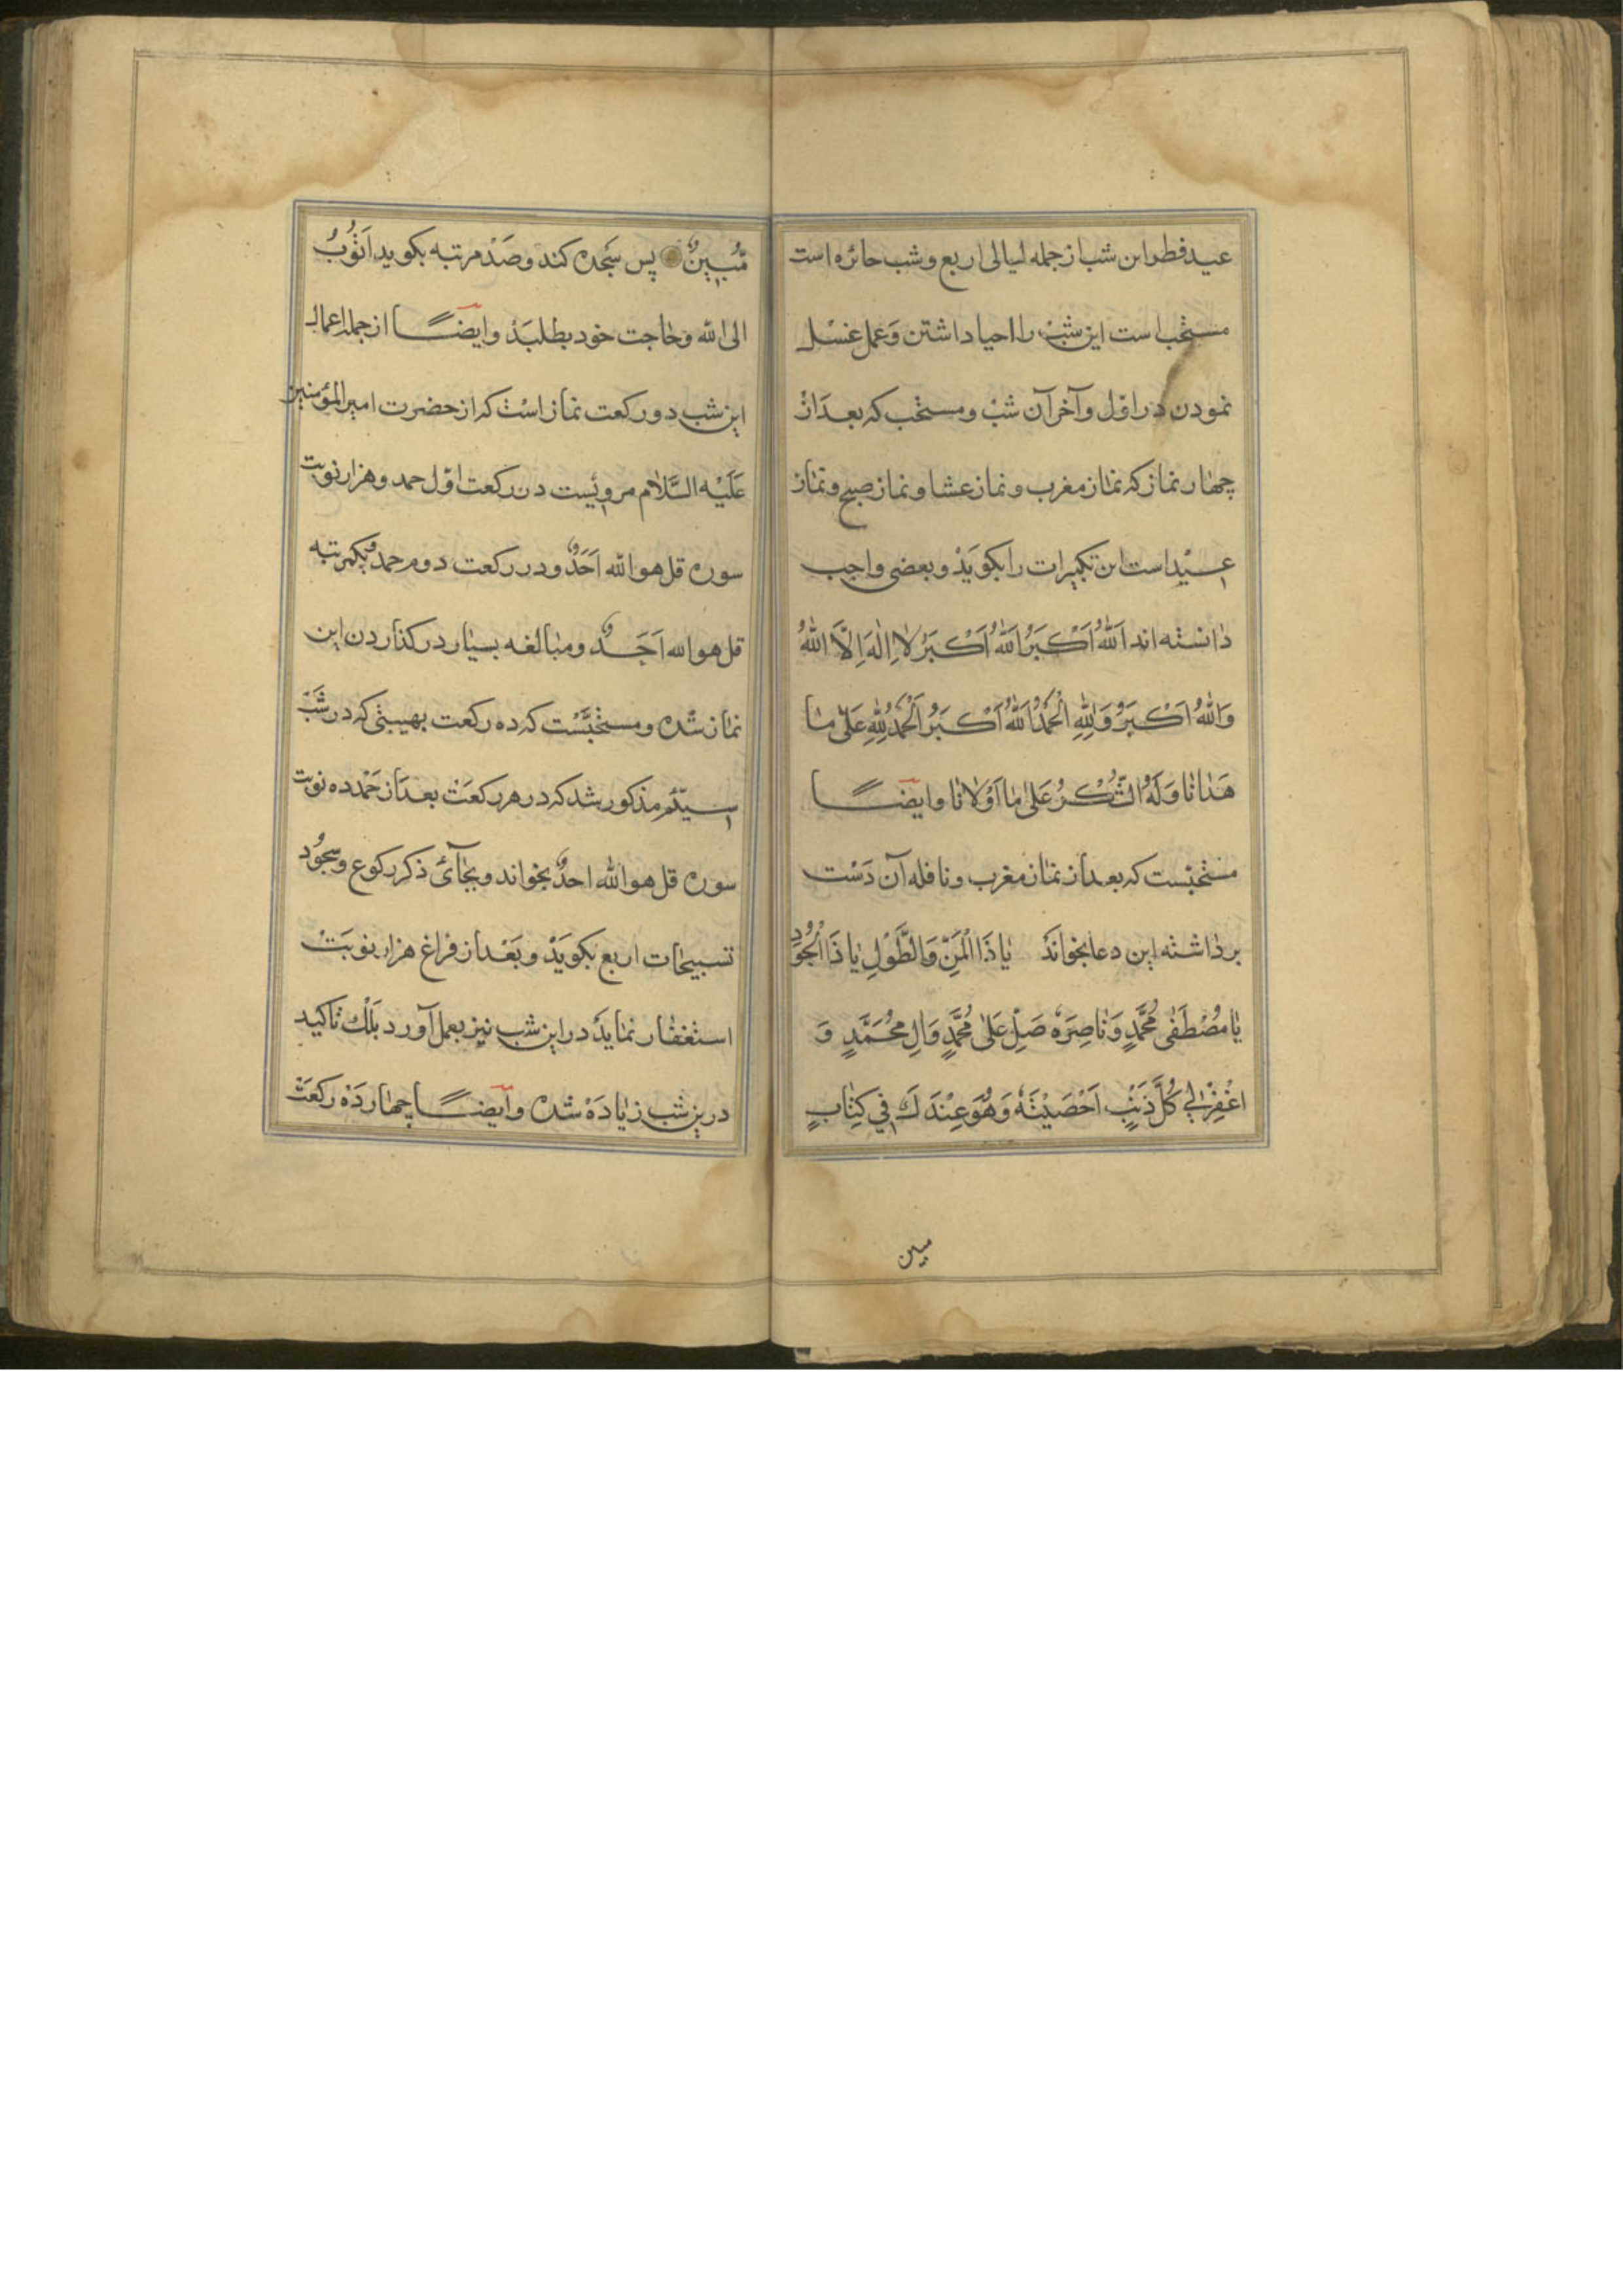 عید فطر این شب از جمله لیالی اربع و شب جائزه است
مستحب است این شب را احیا داشتن و عمل غسل
نمودن در اوّل و آخر آن شب و مستحب که بعد از
چهار نماز که نماز مغرب و نماز عشا و نماز صبح و نماز
عید است این تکبیرات را بکوید و بعضی واجب
دانسته اند اَللّٰهُ اَكْبَرُ اَللّٰهُ اَكْبَرُ لا اِلٰهَ اِلَّا اللّٰهُ
وَاللّٰهُ اَكْبَرُ وَلِلّٰهِ الْحَمْدُ اَللّٰهُ اَكْبَرُ اَلْحَمْدُ لِلّٰهِ عَلىٰ مٰا
هَدٰانٰا وَلَهُ الشُّكْرُ عَلىٰ مٰا اَوْلانٰا و ایضًا
مستحبّست که بعد از نماز مغرب و نافله آن دست
برداشته این دعا بخواند یٰا ذَا الْمَنِّ وَالطَّوْلِ یٰا ذَا الْجُوْدِ
یٰا مُصْطَفٰی مُحَمَّدٍ وَنٰاصِرَهُ صَلِّ عَلىٰ مُحَمَّدٍ وَالِ مُحَمَّدٍ وَ
اغْفِرْلِي كُلَّ ذَنْبٍ اَحْصَيْتَهُ وَهُوَ عِنْدَكَ فِي كِتٰابٍ
مبین
مُبِینٍ پس سجده کند و صد مرتبه بکوید اَتُوبُ
الی الله و حاجت خود بطلبد و ایضًا از جمله اعمال
این شب دو رکعت نماز است که از حضرت امیرالمؤمنین
عَلَیْهِ السَّلام مرویست در رکعت اوّل حمد و هزار نوبت
سوره قل هو الله اَحَدٌ و در رکعت دوم حمد و یکمرتبه
قل هو الله اَحَدٌ و مبالغه بسیار در کذاردن این
نماز شده و مستحبّست که ده رکعت بهیئتی که در شب
سیّم مذکور شد که در هر رکعت بعد از حمد ده نوبت
سوره قل هو الله احدٌ بخواند و بجای ذکر رکوع و سجود
تسبیحات اربع بکوید و بعد از فراغ هزار نوبت
استغفار نماید در این شب نیز بعمل آورد بلک تاکید
درین شب زیاده شده و ایضًا چهارده رکعت